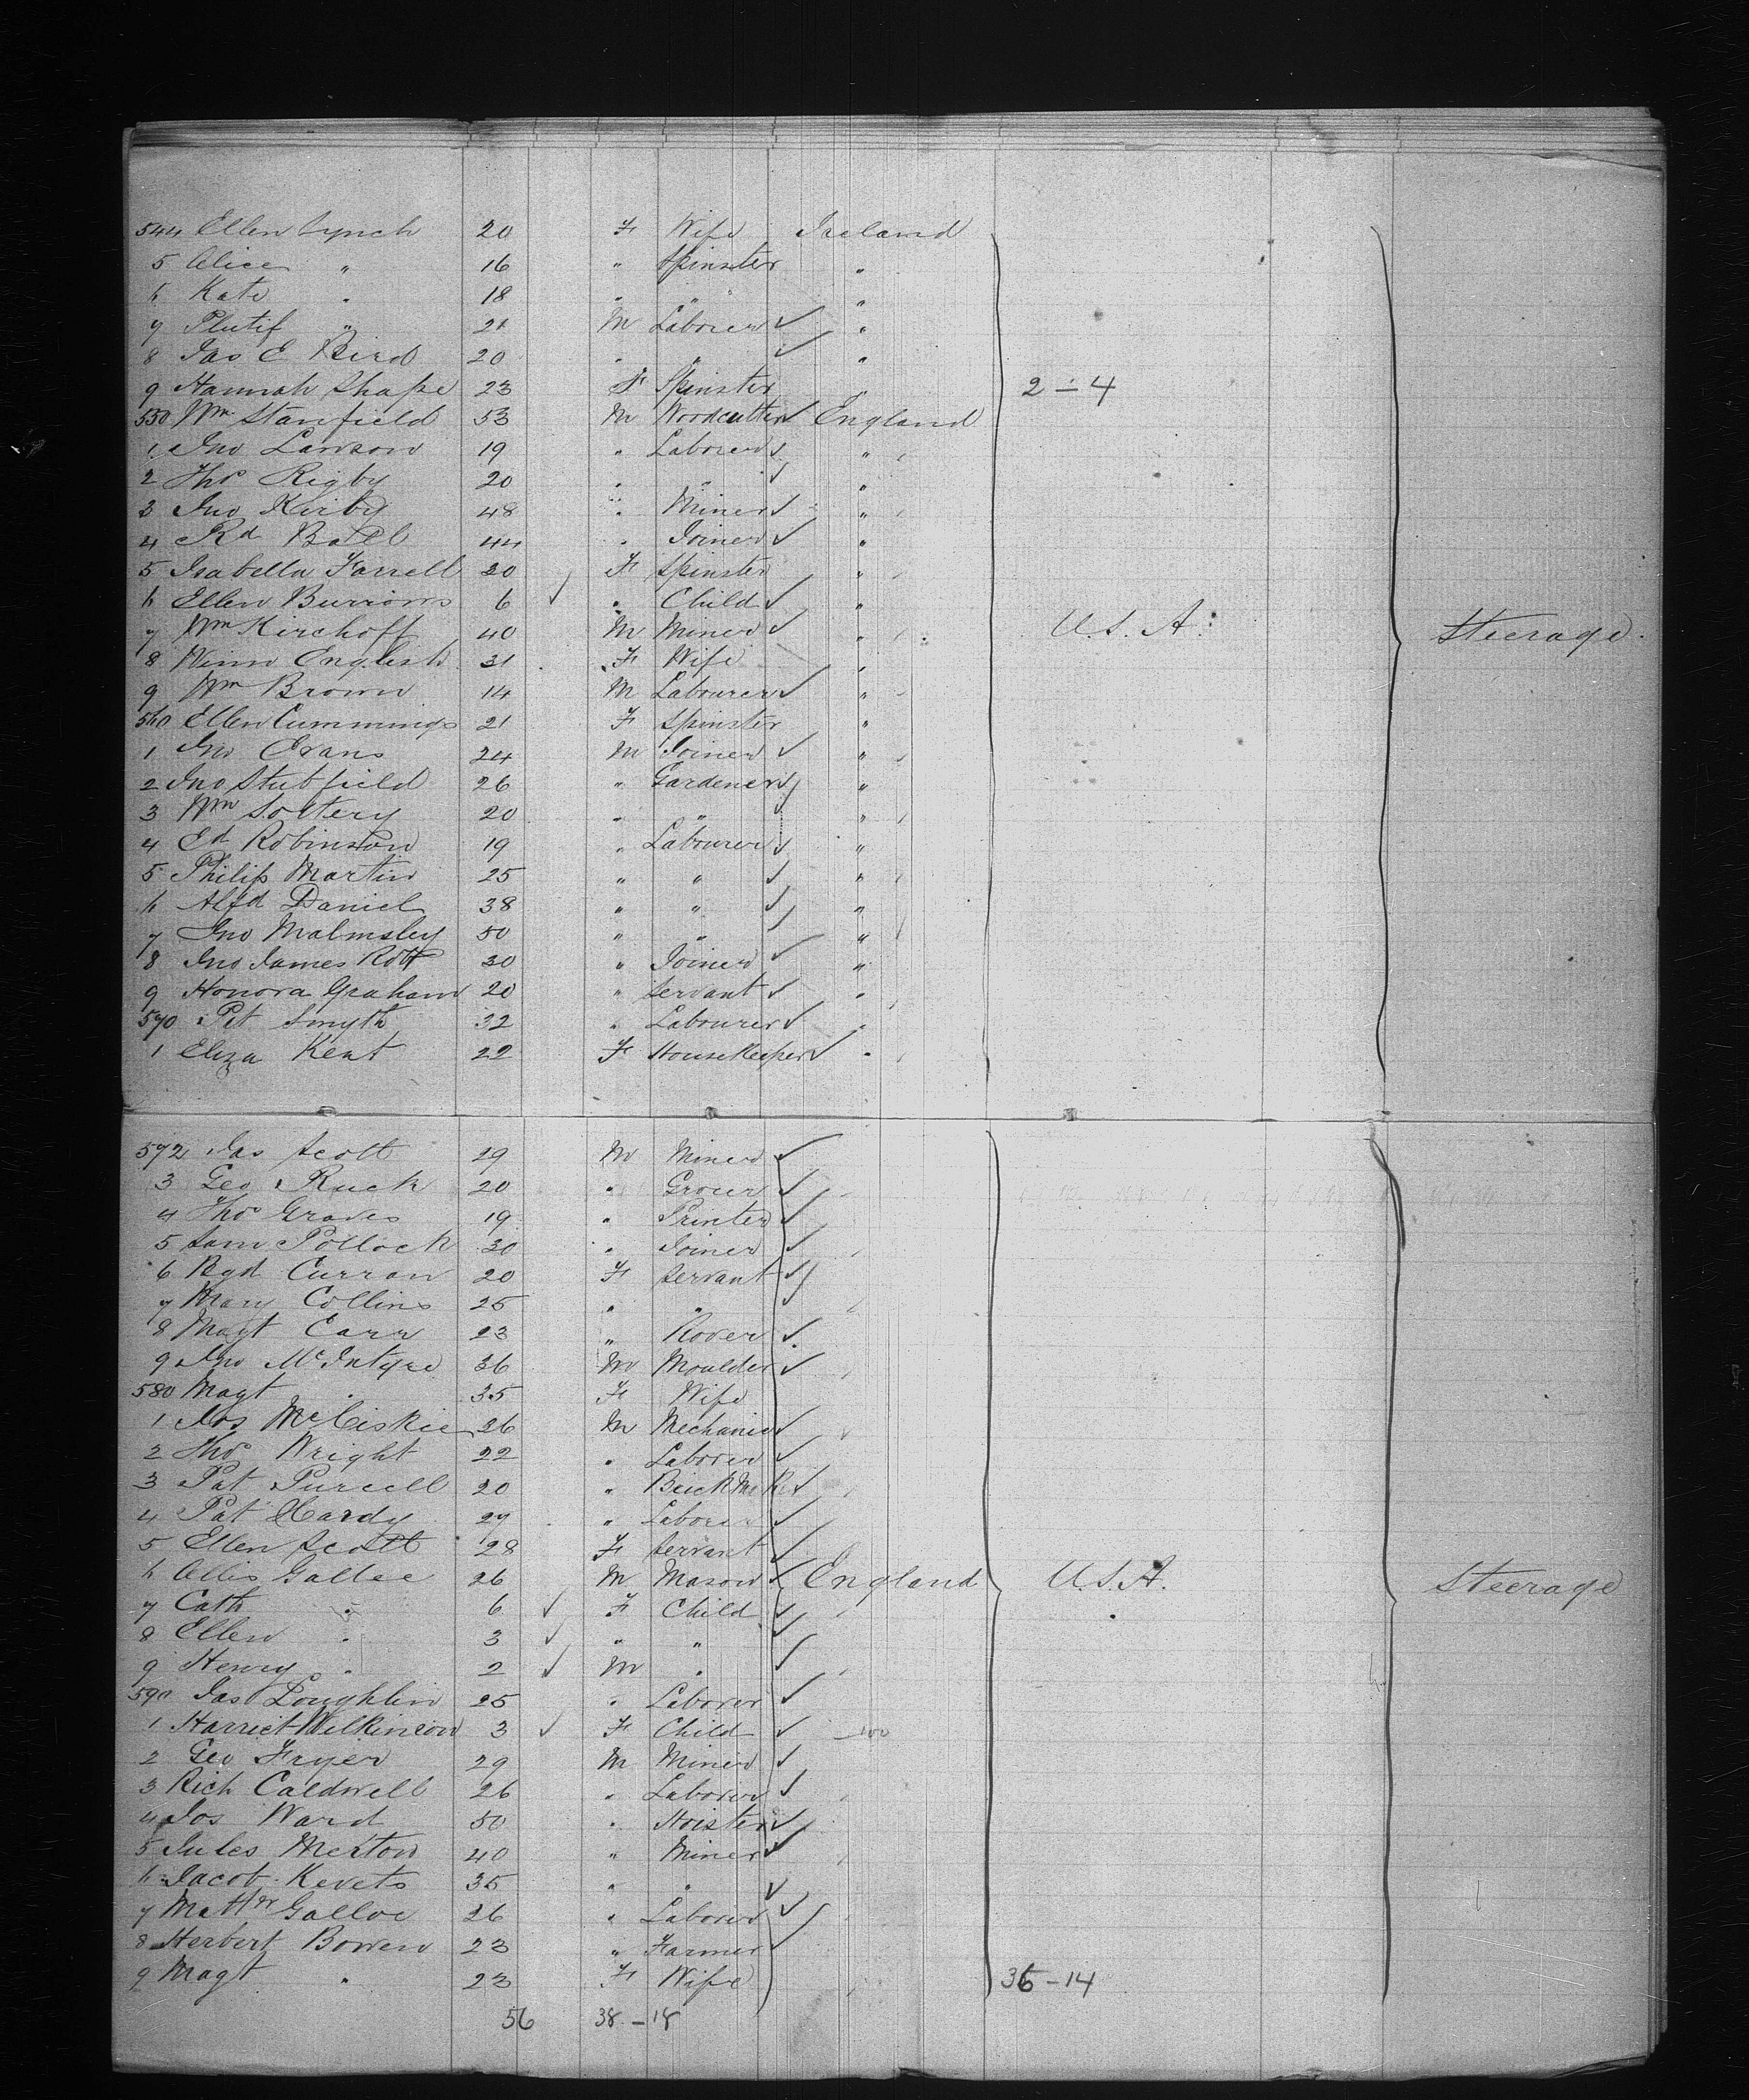 544 Ellen Lynch 20 F Wife Ireland
5 Alice " 16 " Spinster "
6 Kate " 18 " " "
7 " 21 M Laborer "
8 Jas E Bird 20 " " "
9 Hannah Shape 23 F Spinster " 2 - 4
550 Wm Stanfield 53 M Woodcutter England
1 Jno Lawson 19 " Laborer "
2 Thos Rigby 20 " " "
3 Jno Kirby 48 " Miner "
4 Rd Ball 44 " Joiner "
5 Isabella Farrell 30 F Spinster "
6 Ellen Burrows 6 " Child "
7 Wm Kirchoff 40 M Miner " U.S.A. Steerage
8 Winn English 31 F Wife "
9 Wm Brown 14 M Labourer "
560 Ellen Cummings 21 F Spinster "
1 Jno Evans 24 M Joiner "
2 Jno Stubfield 26 " Gardener "
3 Wm Soltery 20 " " "
4 Ed Robinson 19 " Labourer "
5 Philip Martin 25 " " "
6 Alfd Daniel 38 " " "
7 Jno Malmsley 50 " " "
8 Jno James Rott 30 " Joiner "
9 Honora Graham 20 " Servant "
570 Pat Smyth 32 " Labourer "
1 Eliza Kent 22 F HouseKeeper "
572 Jas Scott 29 M Miner
3 Geo Ruck 20 " Grocer
4 Thos Graves 19 " Printer
5 Sam Pollock 30 " Joiner
6 Bgd Curran 20 F Servant
7 Mary Collins 25 " "
8 Magt Carr 23 "
9 Jno McIntyre 36 M Moulder
580 Magt " 35 F Wife
1 Jos McCiskie 26 M Mechanic
2 Thos Wright 22 " Laborer
3 Pat Purcell 20 " BrickMkr
4 Pat Hardy 27 " Laborer
5 Ellen Scott 28 F Servant
6 Ellis Gallee 26 M Mason England U.S.A. Steerage
7 Cath " 6 F Child
8 Ellen " 3 " "
9 Henry " 2 M "
590 Jas Loughlin 25 " Laborer
1 Harriet Wilkinson 3 F Child
2 Geo Fryer 29 M Miner
3 Rich Caldwell 26 " Laborer
4 Jos Ward 50 " Hoister
5 Jules Merton 40 " Miner
6 Jacob Kevets 35 " "
7 Matthw Galloe 26 " Laborer
8 Herbert Bowen 23 " Farmer
9 Magt " 23 F Wife 36 - 14
56 38 - 18